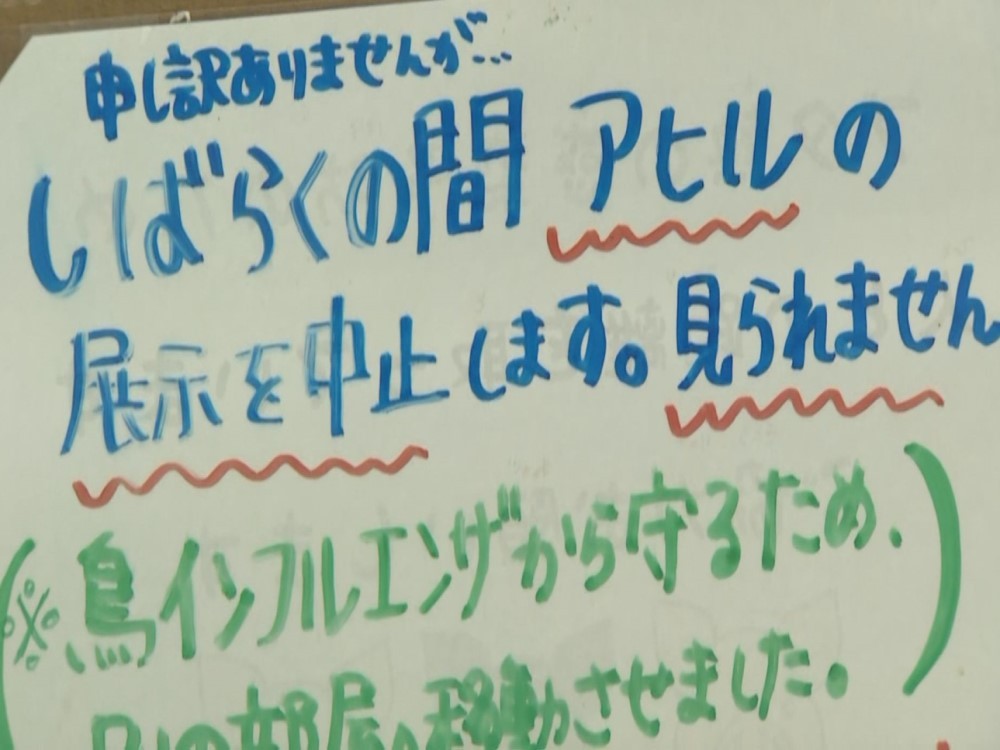 申し訳ありませんが…
しばらくの間 アヒルの
展示を中止します。見られません
(※鳥インフルエンザから守るため、
別の部屋へ移動させました。)